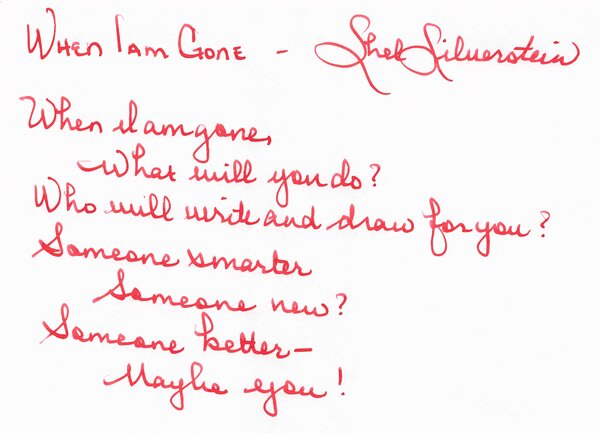 When I am Gone - Shel Silverstein
When I am gone,
What will you do?
Who will write and draw for you?
Someone smarter
Someone new?
Someone better—
Maybe you!